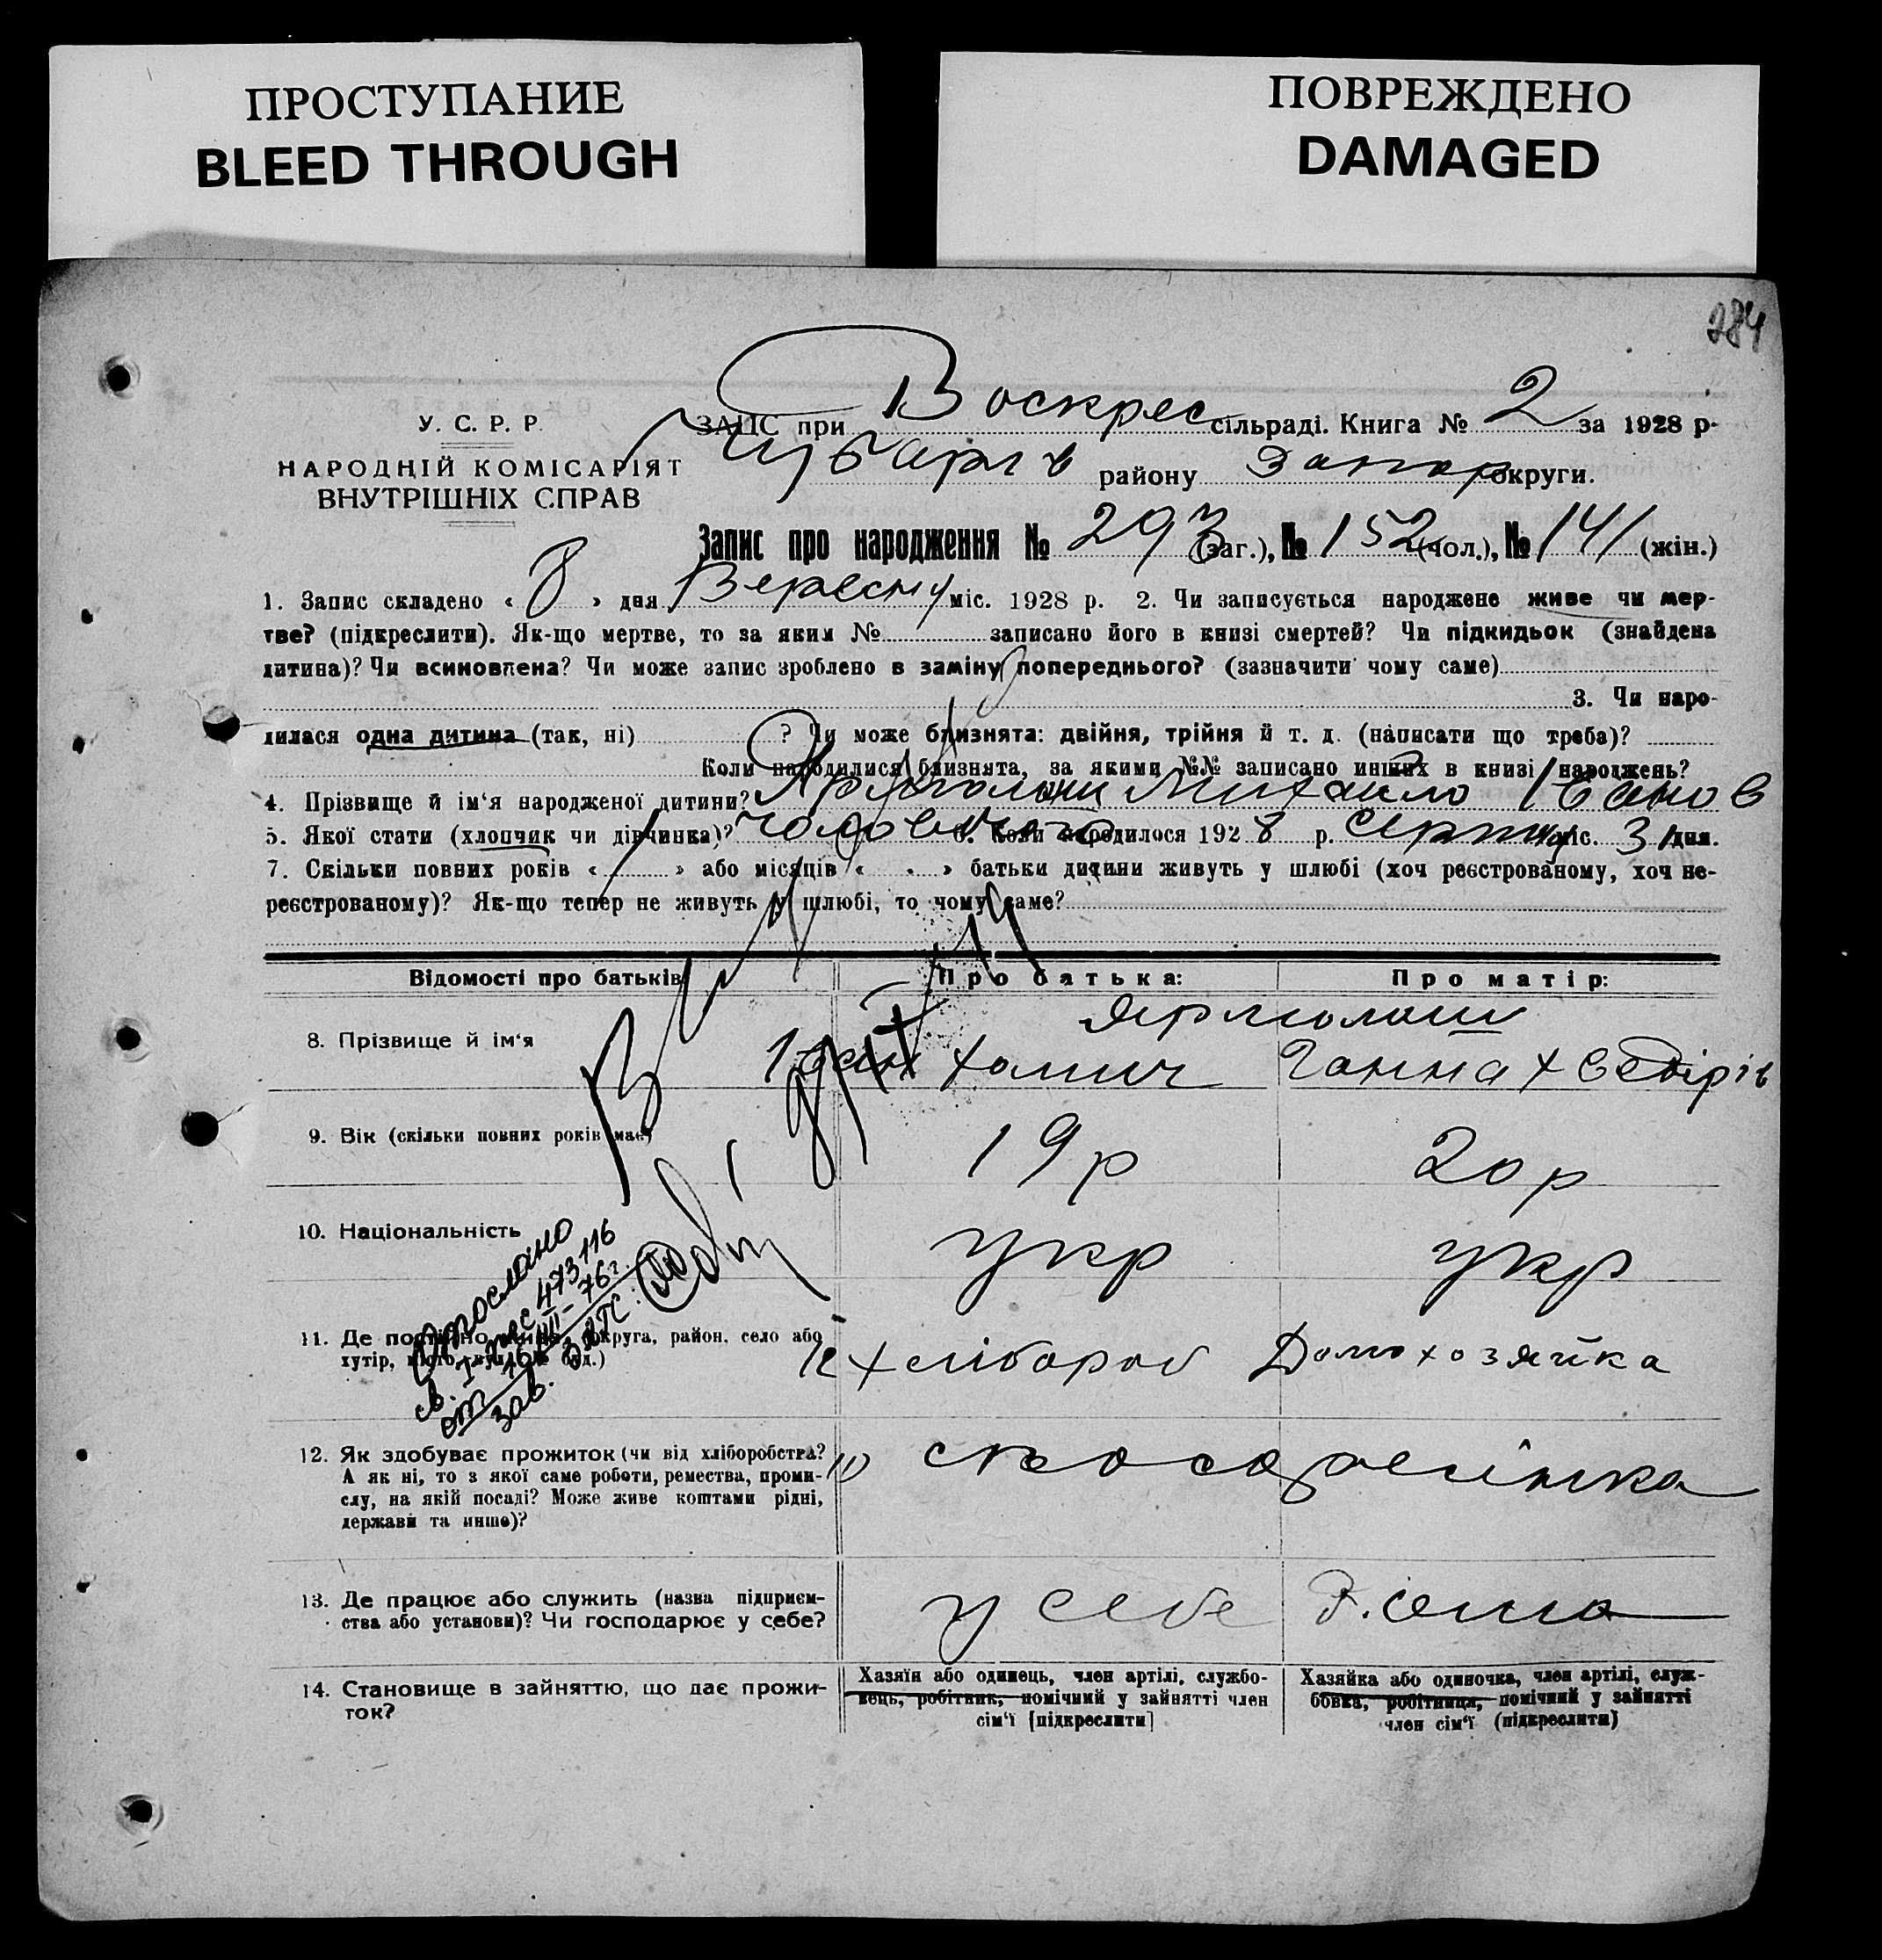 ПРОСТУПАНИЕ
BLEED THROUGH
ПОВРЕЖДЕНО
DAMAGED
284
У. С. Р. Р.
НАРОДНІЙ КОМІСАРІЯТ
ВНУТРІШНІХ СПРАВ
ЗАПС при Воскрес сільраді. Книга № 2 за 1928 р.
Чубарів району Запор округи.
Запис про народження № 293 (заг.), № 152 (чол.), № 141 (жін.)
1. Запис складено « 8 » дня Вересня міс. 1928 р. 2. Чи записується народжене живе чи мер-
тве? (підкреслити). Як-що мертве, то за яким № записано його в книзі смертей? Чи підкидьок (знайдена
дитина)? Чи всиновлена? Чи може запис зроблено в заміну попереднього? (зазначити чому саме)
3. Чи наро-
дилася одна дитина (так, ні) ? Чи може близнята: двійня, трійня й т. д. (написати що треба)?
Коли народилися близнята, за якими №№ записано инших в книзі народжень?
4. Прізвище й ім'я народженої дитини? Ярмолаш Михайло Іванов
5. Якої стати (хлопчик чи дівчинка)? чоловічого 6. Коли народилося 1928 р. Серпня міс. 31 дня.
7. Скільки повних років « » або місяців « » батьки дитини живуть у шлюбі (хоч реєстрованому, хоч не-
реєстрованому)? Як-що тепер не живуть у шлюбі, то чому саме?
Відомості про батьків Про батька: Про матір:
Ярмолаш
8. Прізвище й ім'я Іван Хомич Ганна Хведірів
9. Вік (скільки повних років має) 19 р 20 р
10. Національність укр укр
11. Де постійно живе, (округа, район, село або
хутір, буд.) Хлібороб Домохозяйка
12. Як здобуває прожиток (чи від хліборобства?
А як ні, то з якої саме роботи, ремества, проми-
слу, на якій посаді? Може живе коштами рідні,
держави та инше)?
13. Де працює або служить (назва підприєм-
ства або установи)? Чи господарює у себе? у себе
14. Становище в зайняттю, що дає прожи-
ток?
Хазяїн або одинець, член артілі, службо-
вець, робітник, помічний у зайнятті член
сім'ї [підкреслити]
Хазяйка або одиночка, член артілі, служ-
бовка, робітниця, помічний у зайнятті
член сім'ї (підкреслити)
473116
76 г.
зав.